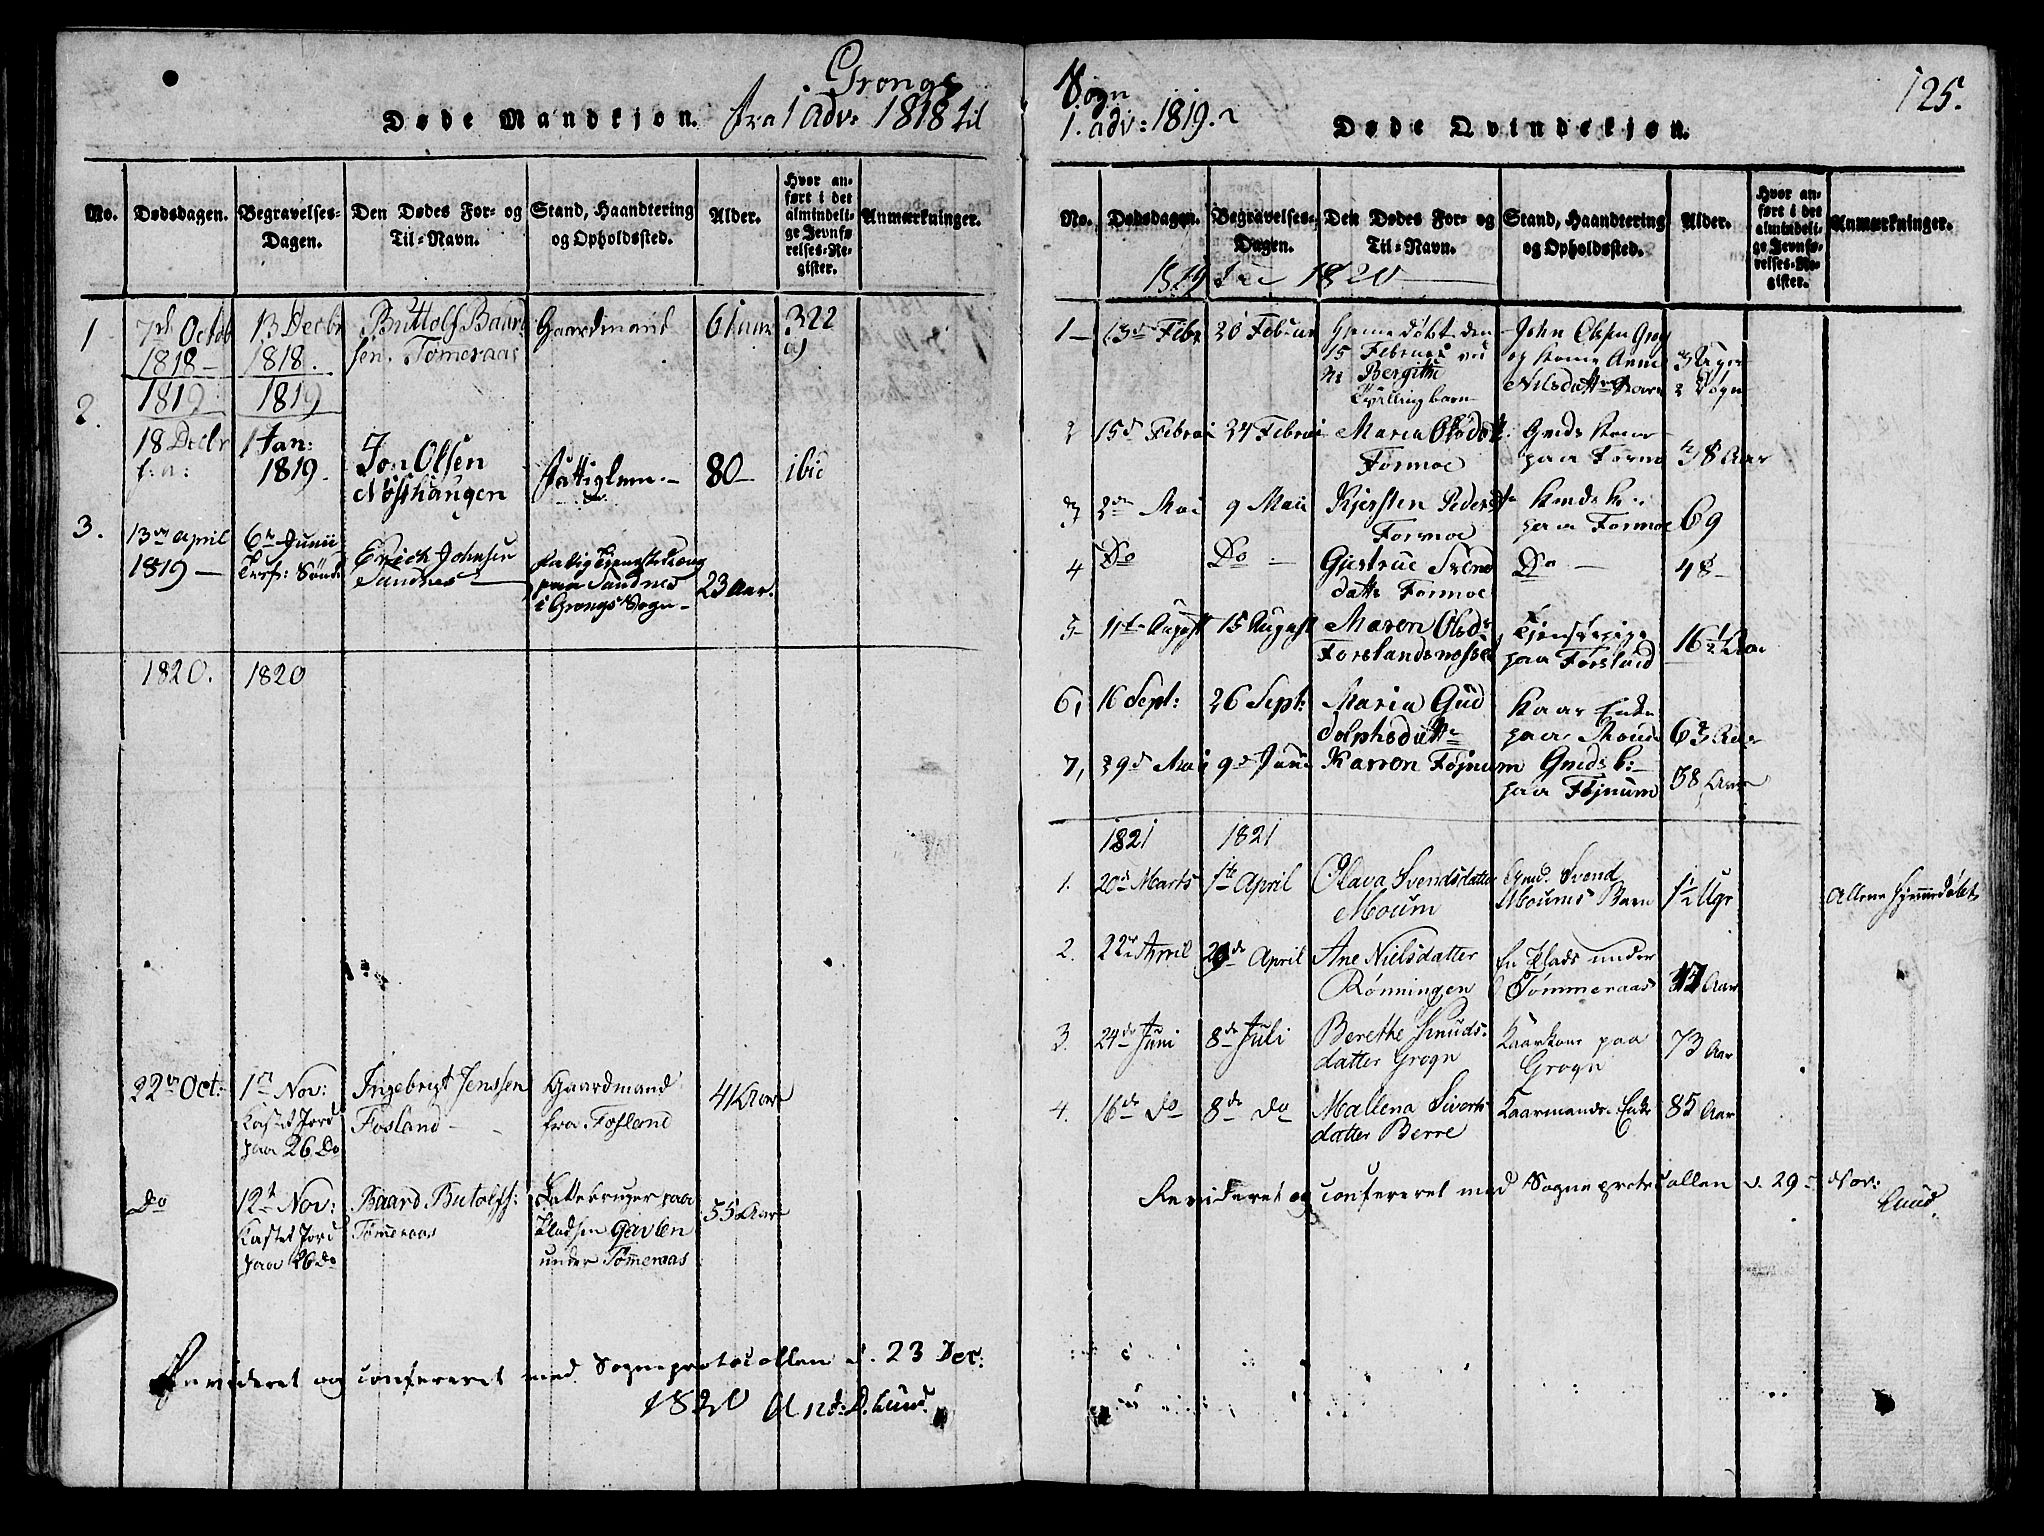 Grongs
Døde Mandkjøn. fra 1 adv: 1818 til
No.
Dødsdagen.
Begravelses-
Dagen.
Den Dødes For- og
Til-Navn.
Stand, Haandtering
og Opholdssted.
Alder.
Hvor an-
ført i det
almindeli-
ge Jevnfø-
relses-Re-
gister.
Anmærkninger.
1
7de Octob
1818
13 Decbr
1818.
Buttolf Baard
sen. Tømeraas
Gaardmand
61 aar
322
a)
2.
1819
1819
18 Decbr
f: a:
1 Jan:
1819.
Jon Olsen
Nøsthaugen
Fattiglem.
80
ibid
3.
13de April
1819
6te Junii
Erich Johnsen
Sandnes
paa Sandnes
i Grongs Sogn
23 aar.
1820.
1820
22de Oct:
1ste Nov:
Kastet Jord
paa 26 Do
Ingebrigt Jenssen
Fosland
Gaardmand
fra Fosland
41 Aar
Do
12te Nov:
Kastet Jord
paa 26 Do
Baard Butolfs:
Tømeraas
Pladsen Gavlen
under Tømeraas
55 Aar
Revideret og confereret med Sogneprotocollen d. 23 Dec:
1820 And: D. Lund
Sogn
1. adv: 1819.
125.
Døde Qvindekjøn.
No.
Dødsdagen.
Begravelses-
Dagen.
Den Dødes For- og
Til-Navn.
Stand, Haandtering
og Opholdssted.
Alder.
Hvor an-
ført i det
almindeli-
ge Jevnfø-
relses-Re-
gister.
Anmærkninger.
1819 1820
1
13de Febr
20 Februar
Hjemmedøbt den
15 Februar ved
Bergitte
Tvillingbarn
John Olsen Grog
og Kone Anne
Nilsdatter
3 Uger
2 Døgn
2
15de Februar
24 Februar
Maria Olsdatter
Formoe
Gmds Kone
paa Formo
38 Aar
3
2den Mai
9 Maii
Kjersten Pedersdtr
Formoe
paa Formoe
69
4
Do
Do
Gjertrue Svend
datter Formoe
Do
48
5
11te August
15 August
Maren Olsdr
Tjenestepige
paa Forslund
16½ Aar
6,
16 Sept:
26 Sept:
Maria Gud
dolphsdatter
Kaar Enke
63 Aar
7,
29de Mai
9de Juni
Karen Føjnum
Gmds K:
paa Føjnum
58 Aar
1821
1821
1.
20de Marts
1ste April
Olava Svendsdatter
Moum
Gmd. Svend
Moums Barn
1½ Uge
Allene hjemmedøbt
2.
22de April
29de April
Ane Nielsdatter
Rønningen
En Plads under
Tømmeraas
Aar
3.
24de Juni
8de Juli
Berethe Knuds-
datter Grogn
Kaarkone paa
Grogn
73 Aar
4.
16de do
8de do
Mallena Siverts
datter Berre
Kaarmands Enke
85 Aar
Revideret og confereret med Sogneprotocollen d. 29de Nov:
Lund.